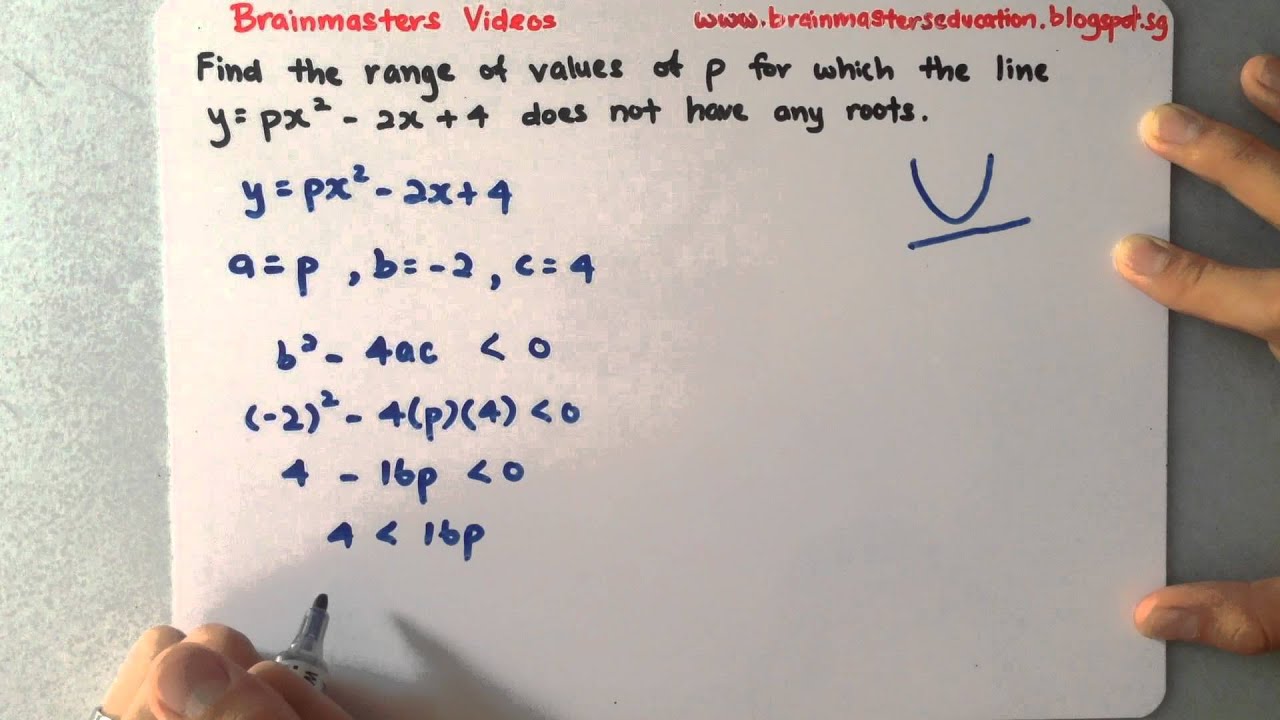 Brainmasters Videos www.brainmasterseducation.blogspot.sg
Find the range of values of p for which the line
y=px² - 2x + 4 does not have any roots.
y = px² - 2x + 4
a = p , b = -2 , c = 4
b² - 4ac < 0
(-2)² - 4(p)(4) < 0
4 - 16p < 0
4 < 16p